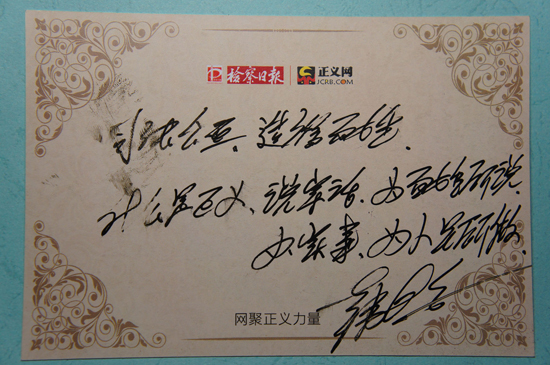 检察日报 正义网
JCRB.COM
司法公正、造福百姓。
什么是正义、说实话、为百姓所说
办实事、为人民所做
网聚正义力量